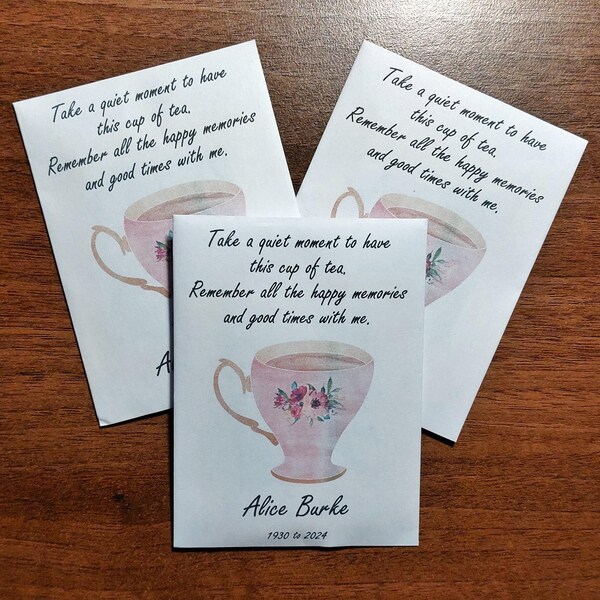 Take a quiet moment to have
this cup of tea.
Remember all the happy memories
and good times with me.
A
Take a quiet moment to have
this cup of tea.
Remember all the happy memories
and good times with me.
Take a quiet moment to have
this cup of tea.
Remember all the happy memories
and good times with me.
Alice Burke
1930 to 2024